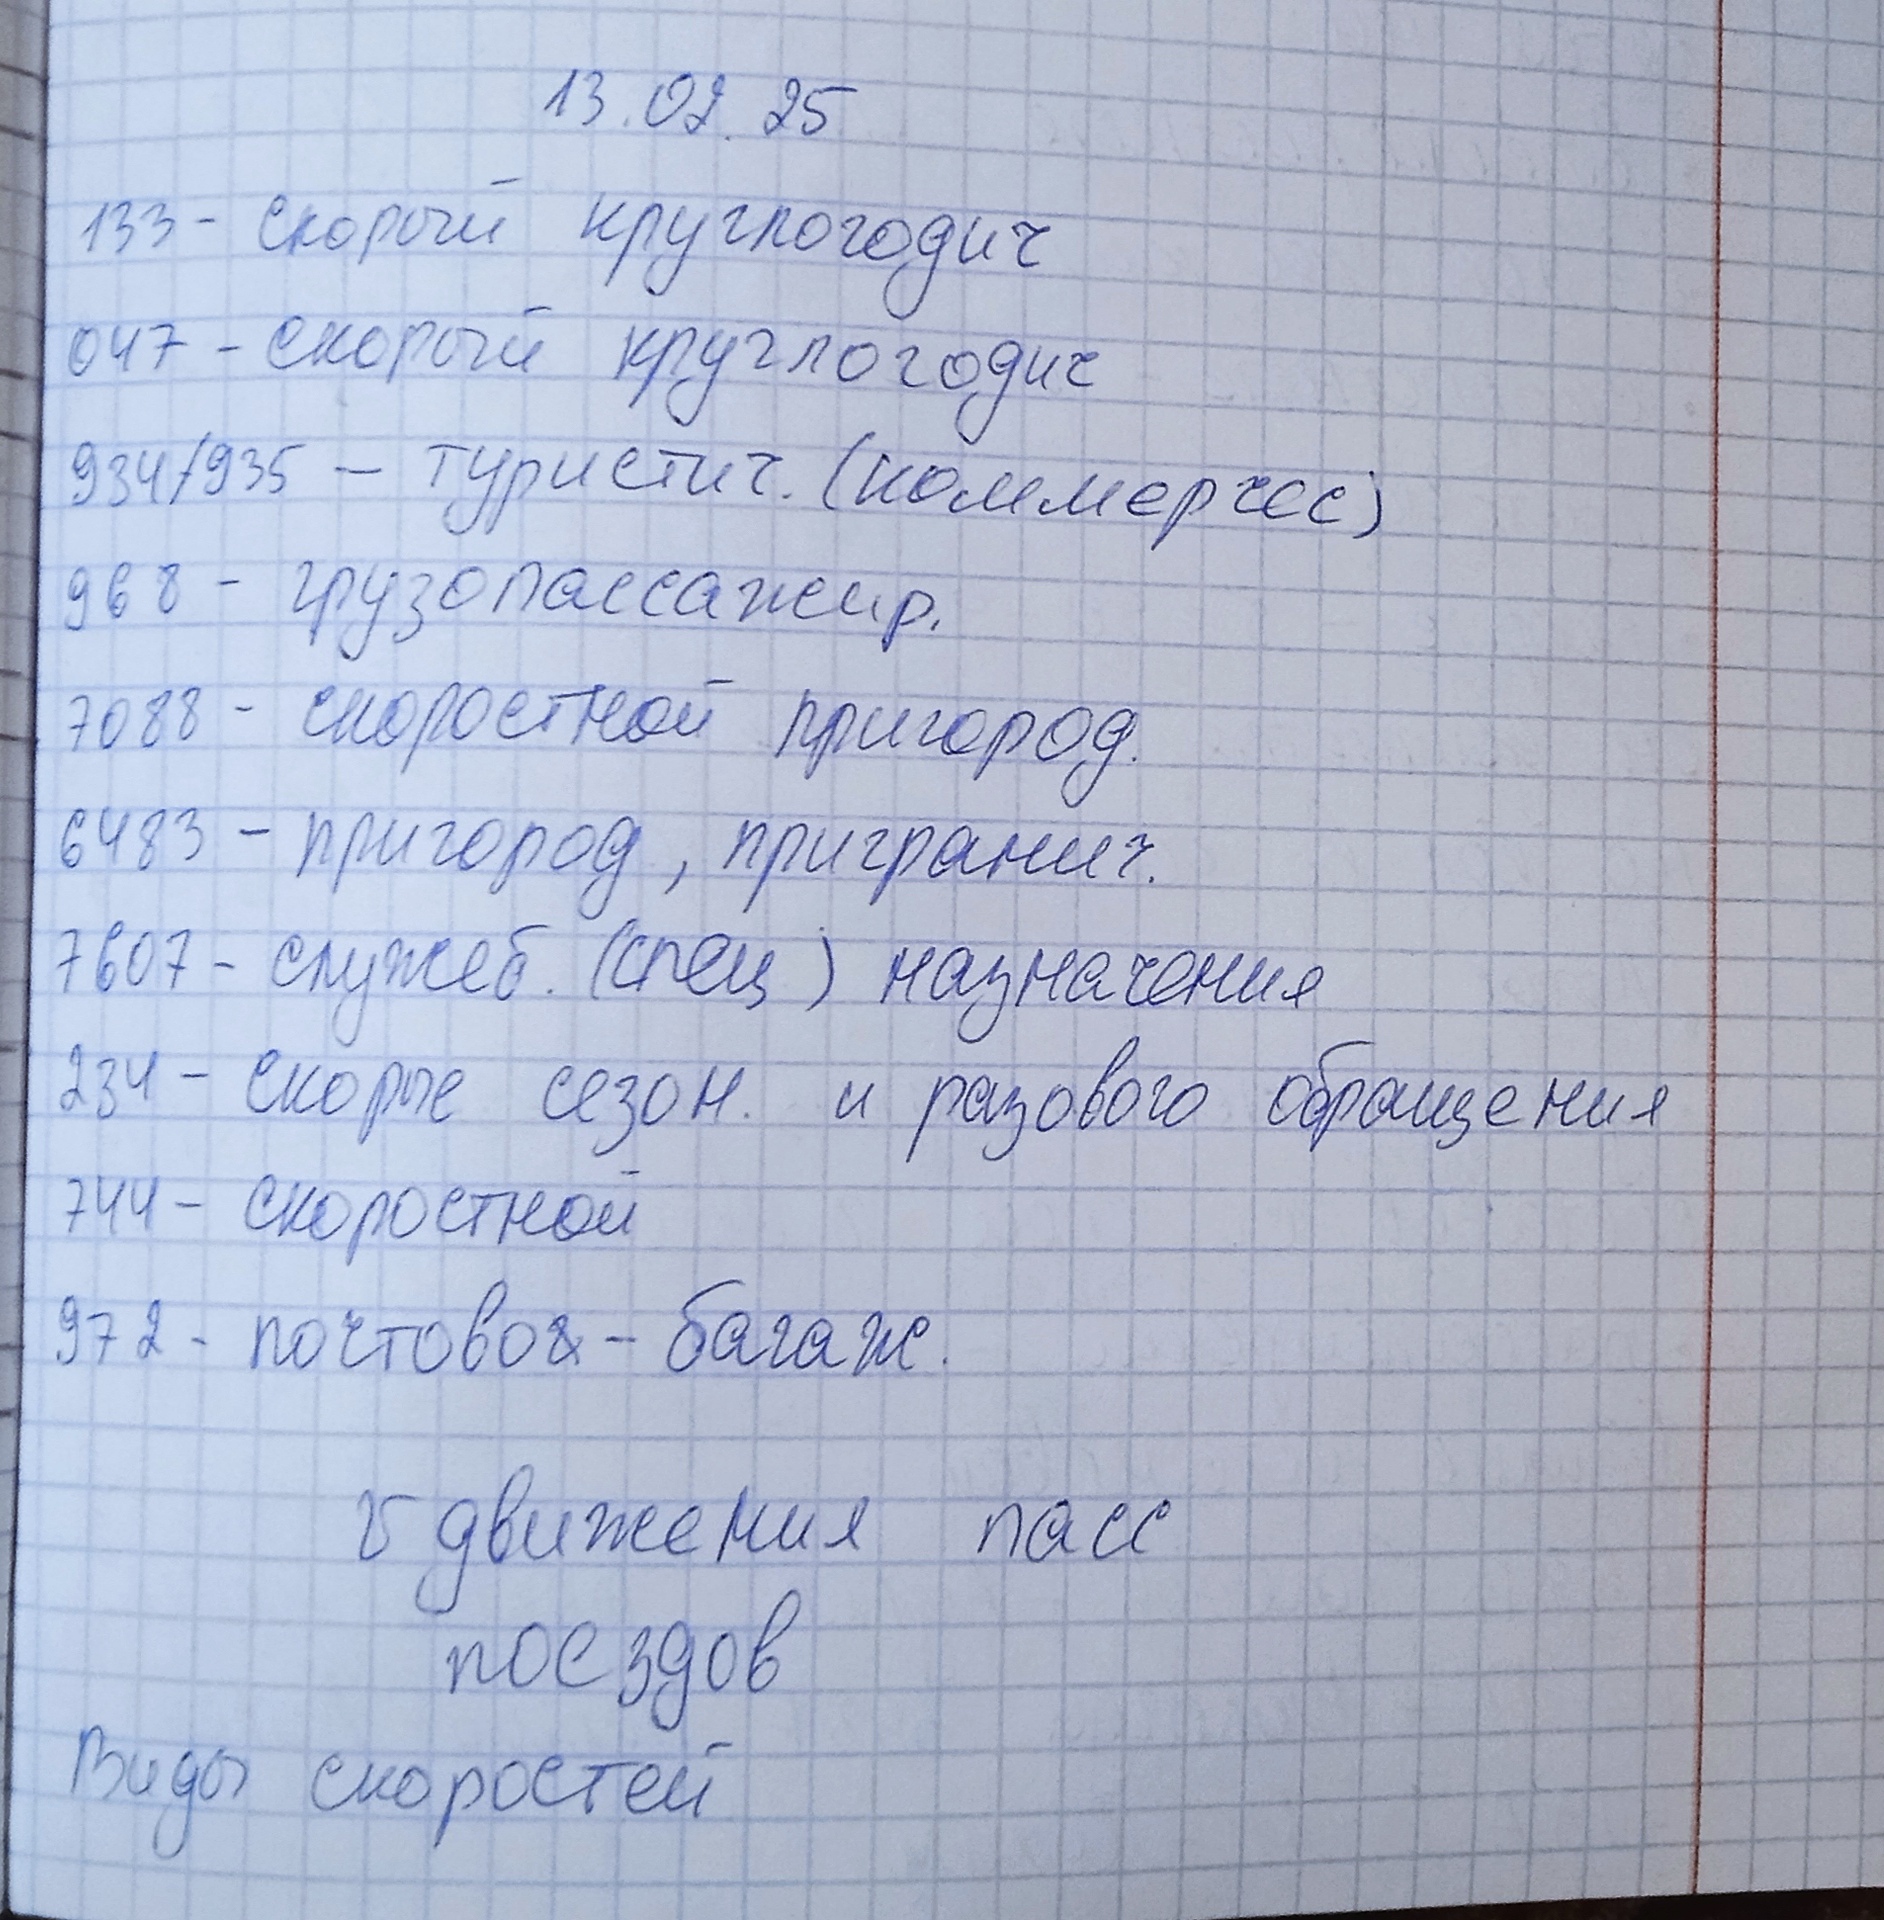 13.02.25
133 - скорый круглогодич
047 - скорый круглогодич
934/935 - туристич. (коммерчес)
968 - грузопассажир.
7088 - скоростной пригород.
6483 - пригород, пригранич.
7607 - служеб. (спец) назначения
234 - скорые сезон. и разового обращения
744 - скоростной
972 - почтово - багаж.
v движения пасс
поездов
Виды скоростей